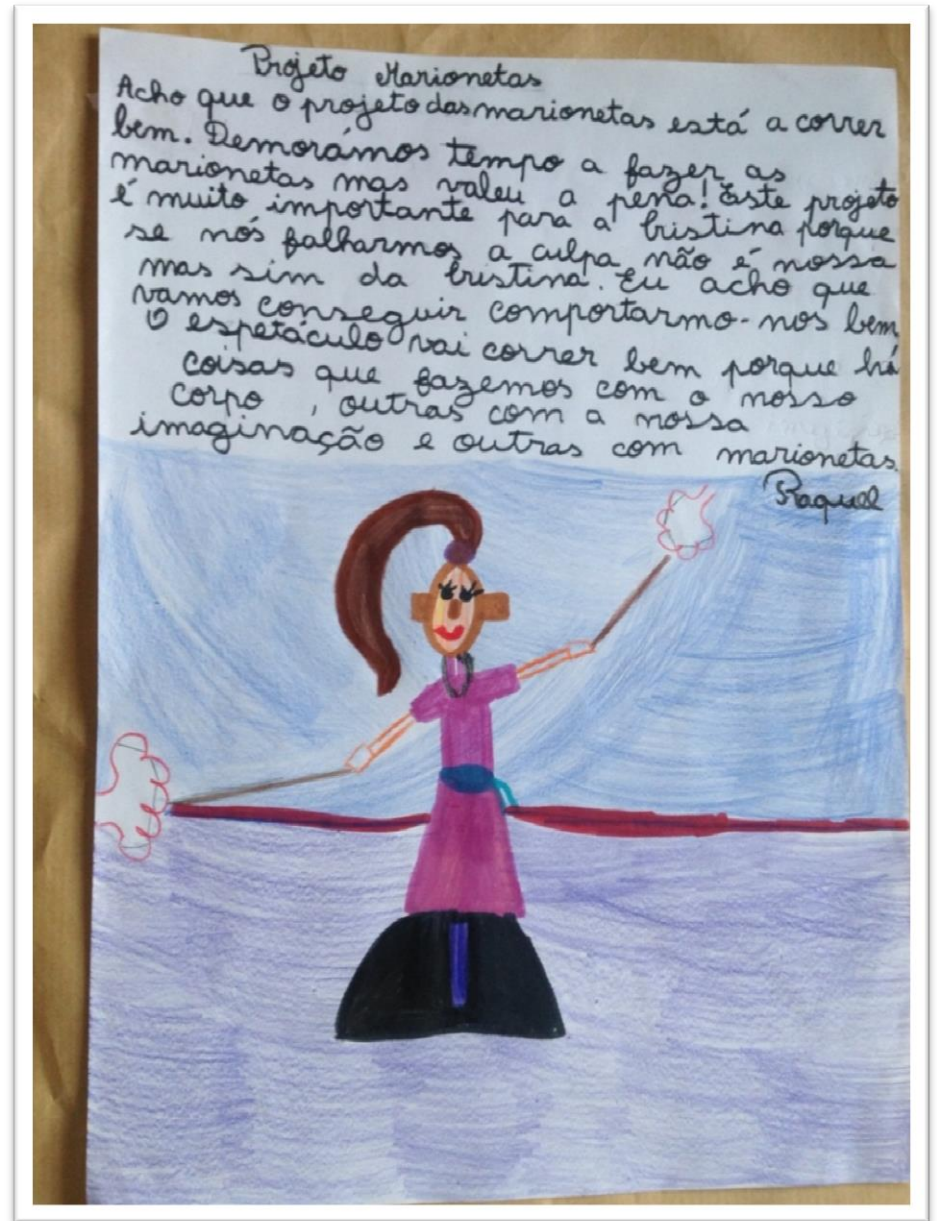 Projeto Marionetas
Acho que o projeto das marionetas está a correr
bem. Demorámos tempo a fazer as
marionetas mas valeu a pena! Este projeto
é muito importante para a Cristina porque
se nós falharmos a culpa não é nossa
mas sim da Cristina. Eu acho que
vamos conseguir comportarmo-nos bem,
O espetáculo vai correr bem porque há
coisas que fazemos com o nosso
corpo, outras com a nossa
imaginação e outras com marionetas.
Raquel